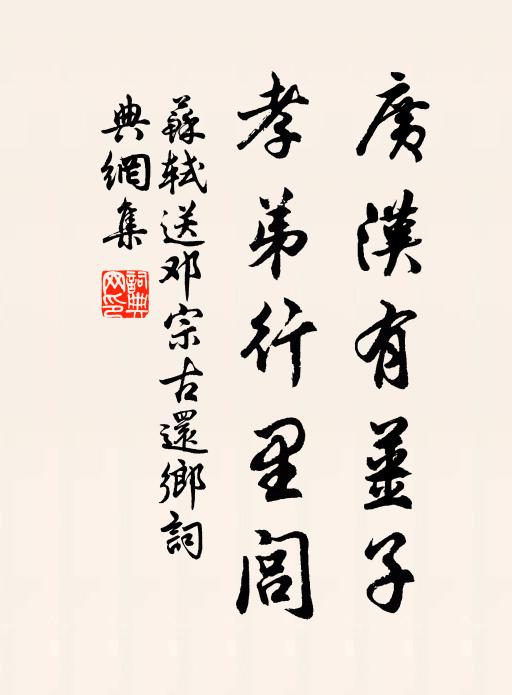 廣漢有薑子
孝弟行里閭
蘇軾送邓宗古還鄉詞
典網集
詞典網印